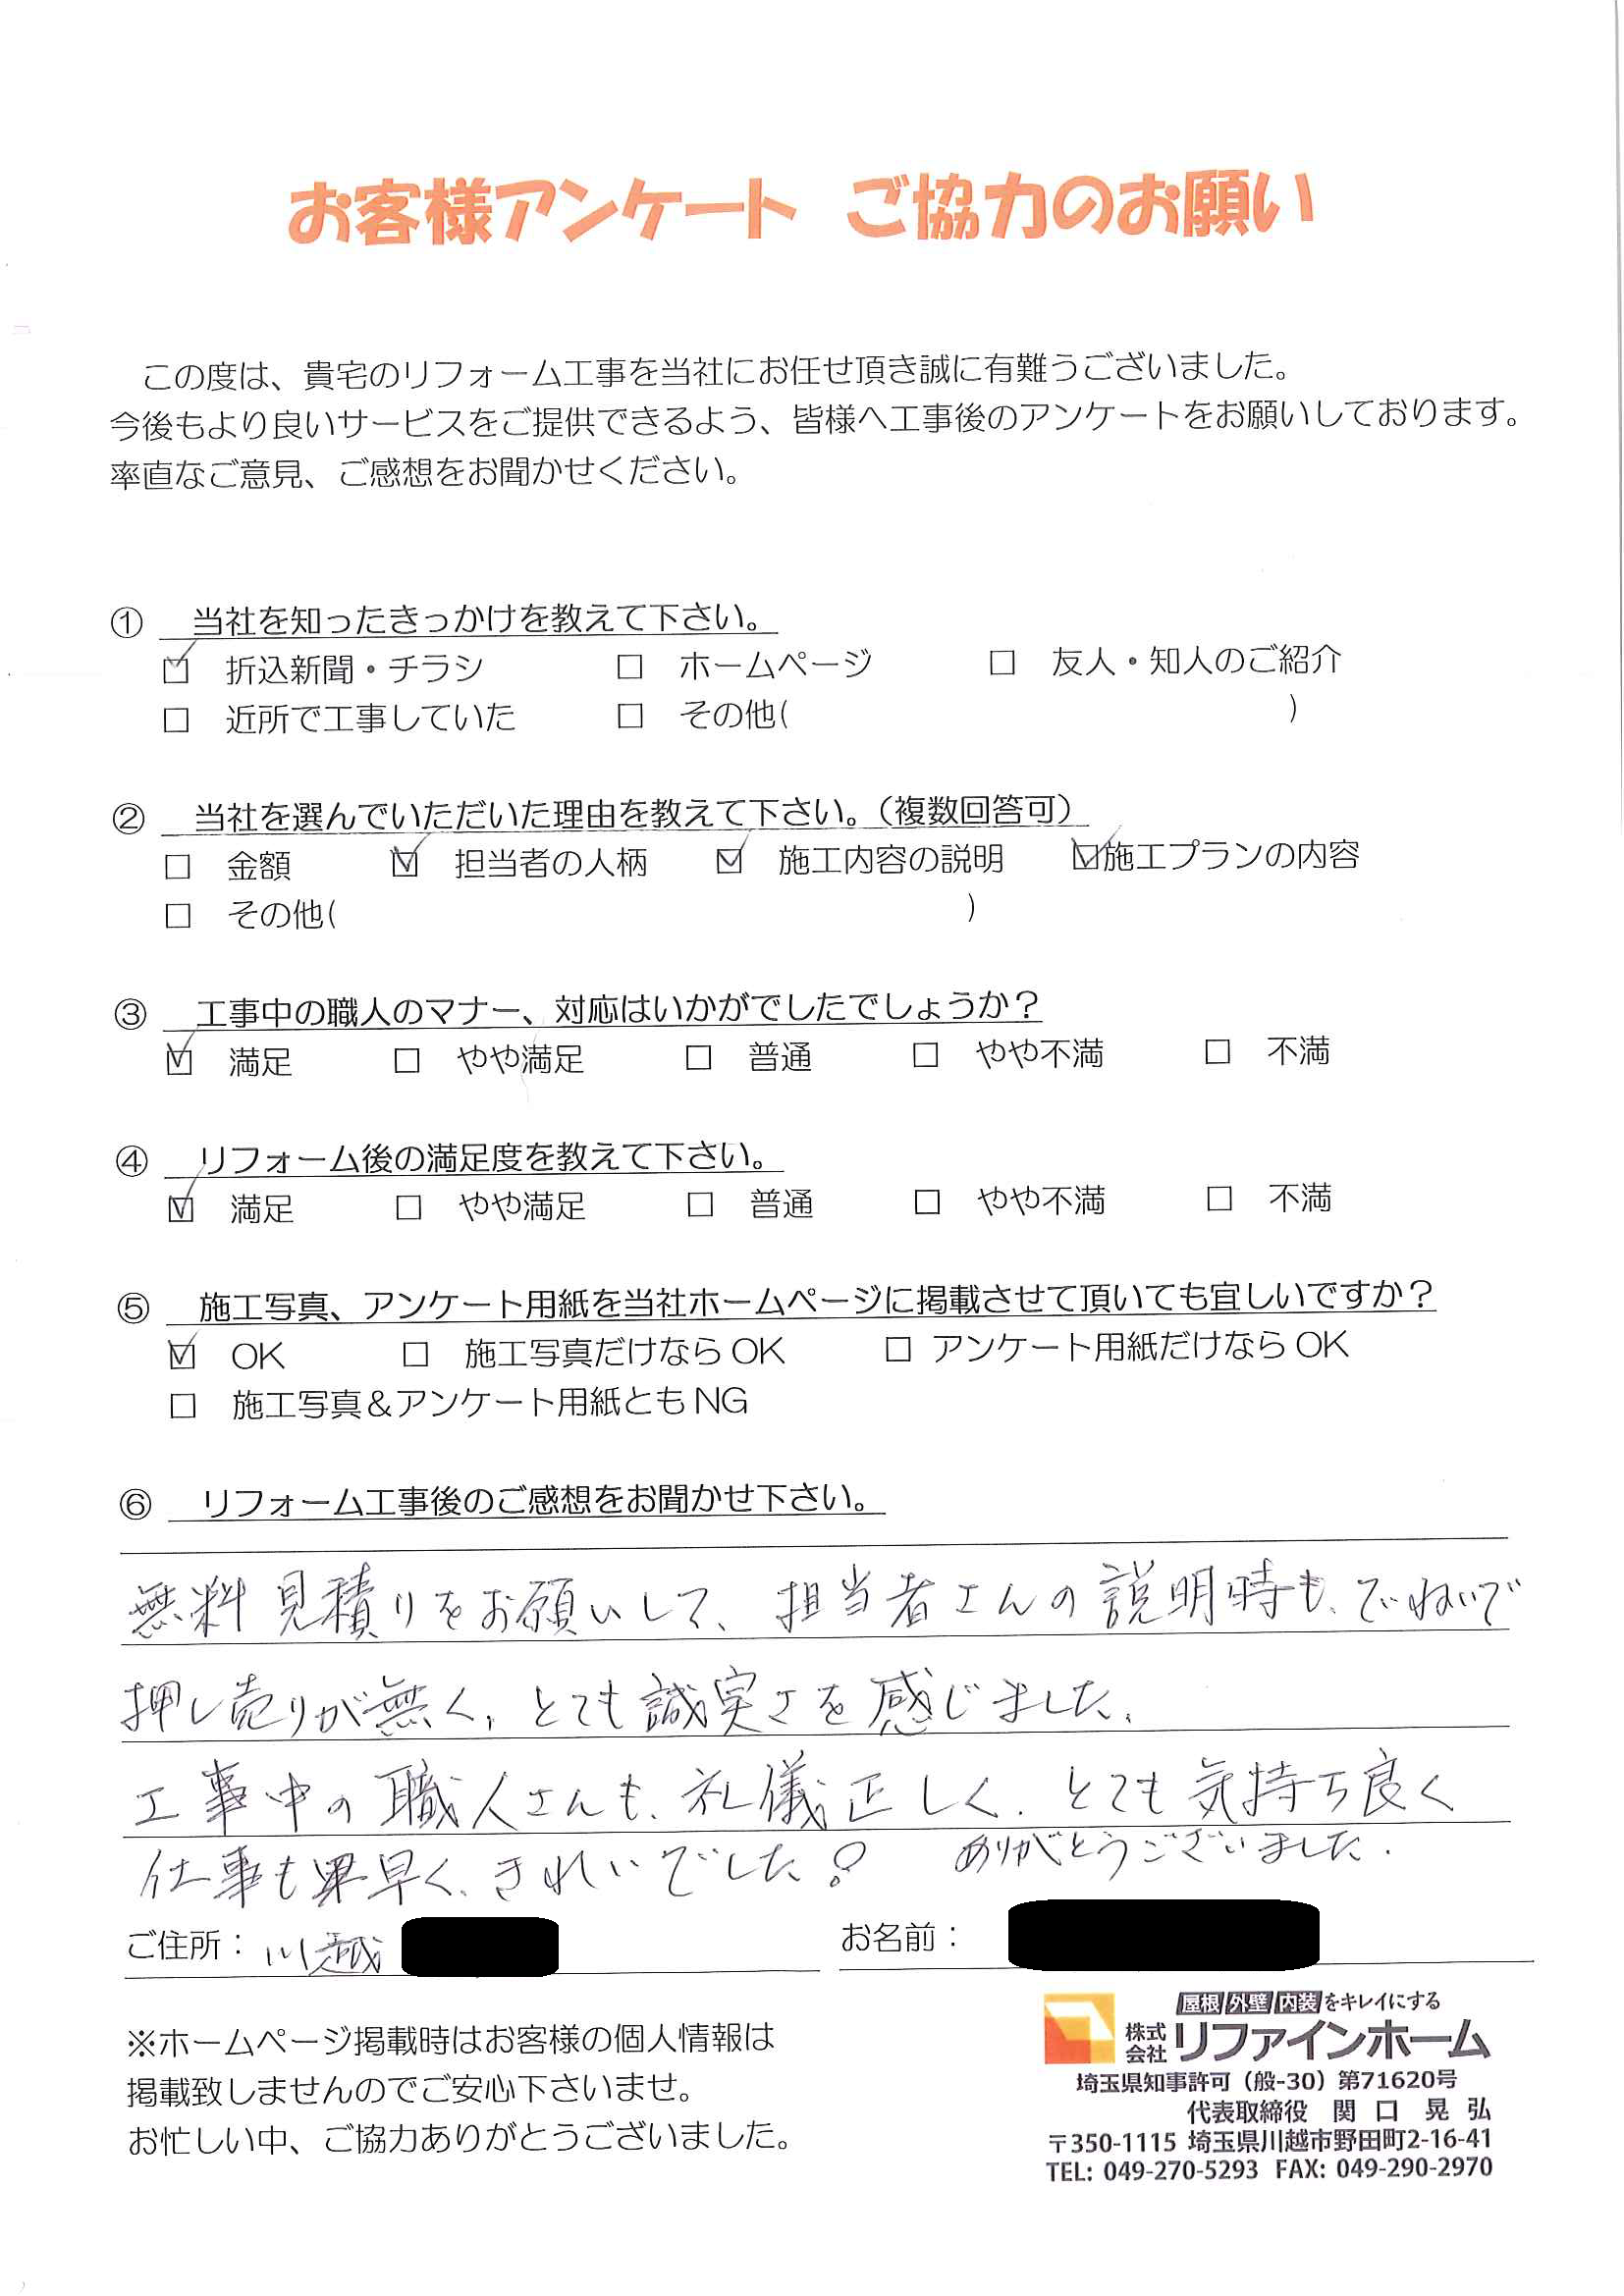 お客様アンケート ご協力のお願い
この度は、貴宅のリフォーム工事を当社にお任せ頂き誠に有難うございました。
今後もより良いサービスをご提供できるよう、皆様へ工事後のアンケートをお願いしております。
率直なご意見、ご感想をお聞かせください。
① 当社を知ったきっかけを教えて下さい。
☑ 折込新聞・チラシ □ ホームページ □ 友人・知人のご紹介
□ 近所で工事していた □ その他( )
② 当社を選んでいただいた理由を教えて下さい。(複数回答可)
□ 金額 ☑ 担当者の人柄 ☑ 施工内容の説明 ☑施工プランの内容
□ その他( )
③ 工事中の職人のマナー、対応はいかがでしたでしょうか？
☑ 満足 □ やや満足 □ 普通 □ やや不満 □ 不満
④ リフォーム後の満足度を教えて下さい。
☑ 満足 □ やや満足 □ 普通 □ やや不満 □ 不満
⑤ 施工写真、アンケート用紙を当社ホームページに掲載させて頂いても宜しいですか？
☑ OK □ 施工写真だけなら OK □ アンケート用紙だけなら OK
□ 施工写真＆アンケート用紙とも NG
⑥ リフォーム工事後のご感想をお聞かせ下さい。
無料見積りをお願いして、担当者さんの説明時も、ていねいで
押し売りが無く、とても誠実さを感じました。
工事中の職人さんも、礼儀正しく、とても気持ち良く
仕事も早く、きれいでした! ありがとうございました.
ご住所： 川越 お名前：
※ホームページ掲載時はお客様の個人情報は
掲載致しませんのでご安心下さいませ。
お忙しい中、ご協力ありがとうございました。
屋根 外壁 内装をキレイにする
株式会社 リファインホーム
埼玉県知事許可（般-30）第71620号
代表取締役 関口 晃弘
〒350-1115 埼玉県川越市野田町2-16-41
TEL: 049-270-5293 FAX: 049-290-2970